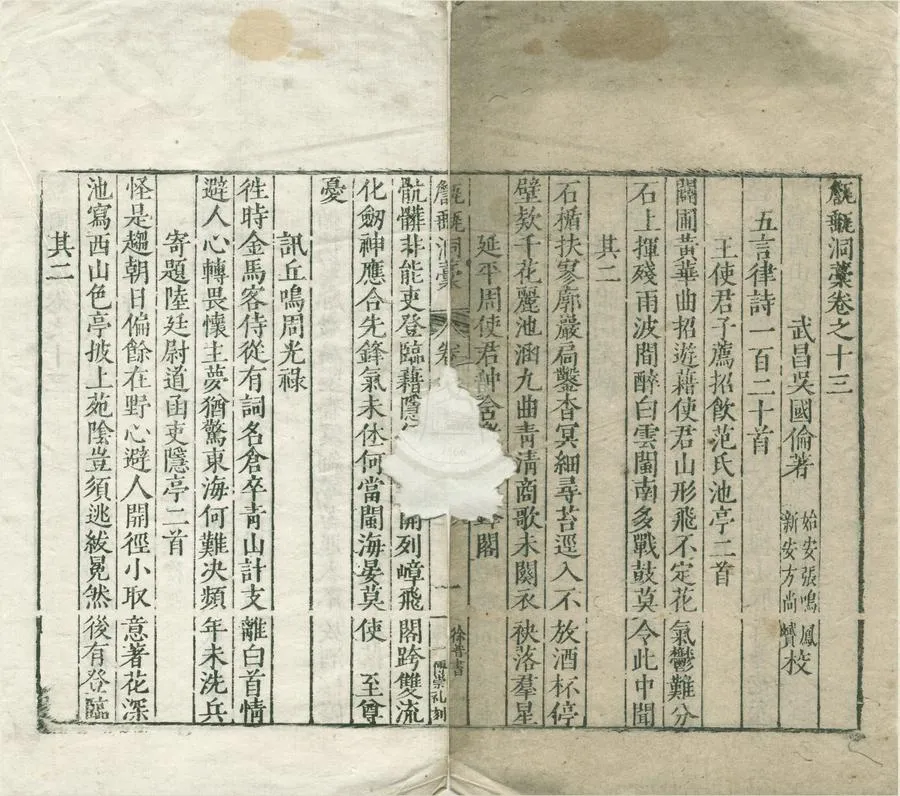 甔甀洞藁卷之十三
武昌吳國倫著 始安張鳴鳳 新安方尚贇校
五言律詩一百二十首
王使君子薦招飲范氏池亭二首
閬圃黃華曲招遊藉使君山形飛不定花氣鬱難分
石上揮殘雨波間醉白雲閩南多戰鼓莫令此中聞
其二
石楯扶寥廓巖扃鑿杳冥細尋苔逕入不放酒杯停
壁欹千花麗池涵九曲青清商歌未闋衣袂落羣星
延平周使君
閣
甔甀洞藁
卷
徐普書
一
傅崇礼刻
骯髒非能吏登臨藉隱
開列嶂飛閣跨雙流
化劒神應合先鋒氣未休何當閩海晏莫使 至尊
憂
訊丘鳴周光祿
徃時金馬客侍從有詞名倉卒青山計支離白首情
避人心轉畏懷主夢猶驚東海何難决頻年未洗兵
寄題陸廷尉道函吏隱亭二首
怪是趨朝日偏餘在野心避人開徑小取意著花深
池寫西山色亭披上苑陰豈須逃紱冕然後有登臨
其二